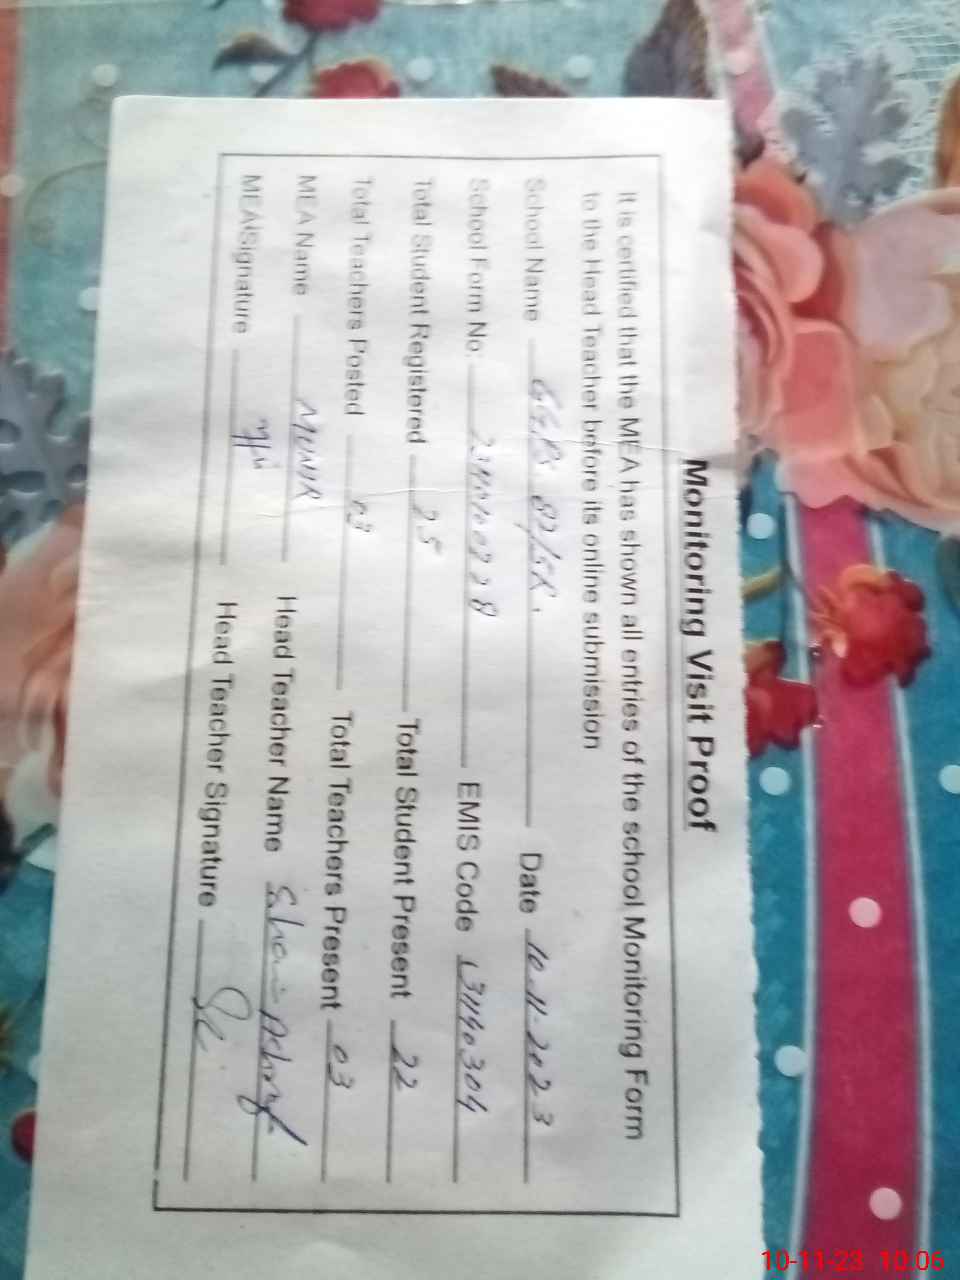 Monitoring Visit Proof
It is certified that the MEA has shown all entries of the school Monitoring Form
to the Head Teacher before its online submission
School Name 82/5R. Date 10-11-2023
School Form No: EMIS Code 31140304
Total Student Registered 25 Total Student Present 22
Total Teachers Posted 03 Total Teachers Present 03
MEA Name MUNIR Head Teacher Name
MEA Signature Head Teacher Signature
10-11-23 10:06